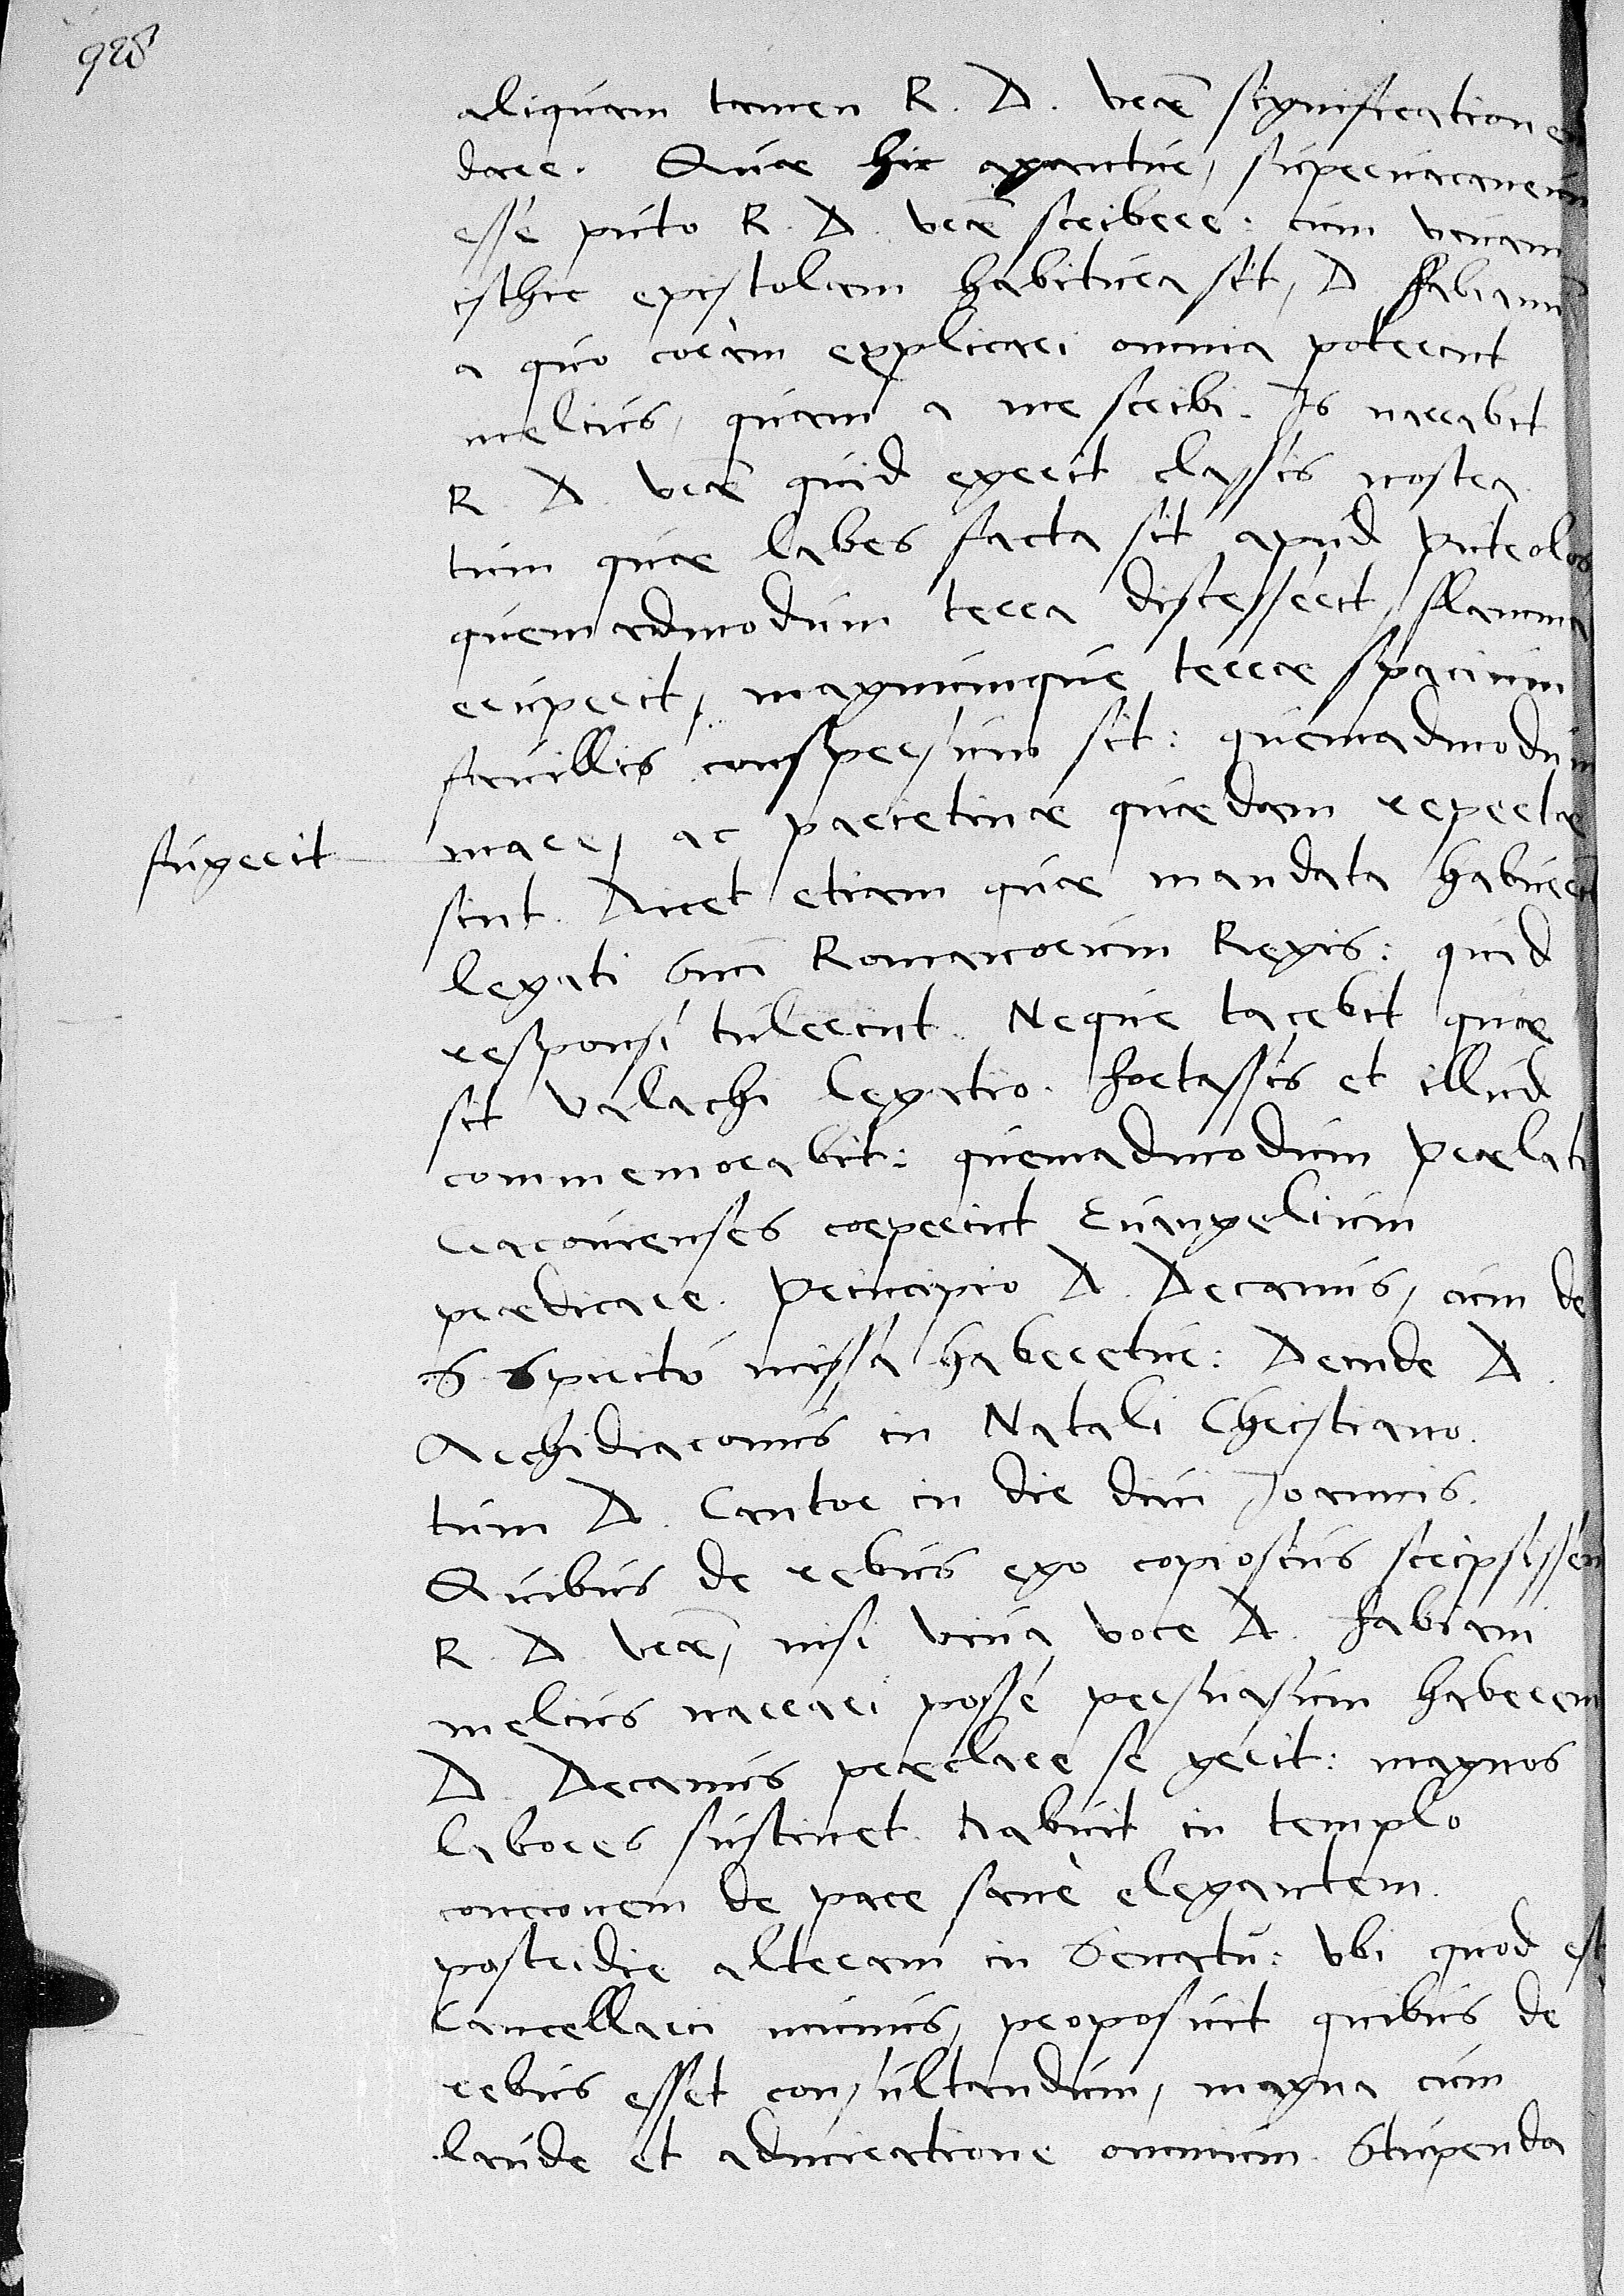 928
aliquam tamen R. D. vrae significationem
dare. Quae hic agantur, supervacaneum
esse puto R. D. vrae scribere: cum vivam
isthic epistolam habitura sit, D. Fabianum
a quo coram explicari omnia poterint
melius, quam a me scribi. Is narrabit
R. D. vrae quid egerit classis nostra
tum quae labes facta sit apud Puteolos
quemadmodum terra discesserit, flamma
eruperit, magnumque terrae spacium
favillis conspersum sit: quemadmodum
fugerit
mare, ac parietinae quaedam repertae
sint. Dicet etiam quae mandata habuerint
legati Smi Romanorum Regis: quid
responsi tulerint. Neque tacebit quae
sit Valachi legatio. Fortassis et illud
commemorabit: quemadmodum Praelati
Cracovienses coeperint Evangelium
praedicare. Principio D. Decanus, cum de
S. Spiritu missa haberetur: Deinde D.
Archidiaconus in Natali Christiano.
tum D. Cantor in die divi Joannis.
Quibus de rebus ego copiosius scripsissem
R. D. vrae, nisi viva voce D. Fabiani
melius narrari posse persuasum haberem
D. Decanus praeclare se gerit: magnos
labores sustinet. Habuit in templo
concionem de pace sanè elegantem.
postridie alteram in Senatu: Vbi quod est
Cancellarii munus, proposuit quibus de
rebus esset consultandum, magna cum
laude et admiratione omnium. Stupenda